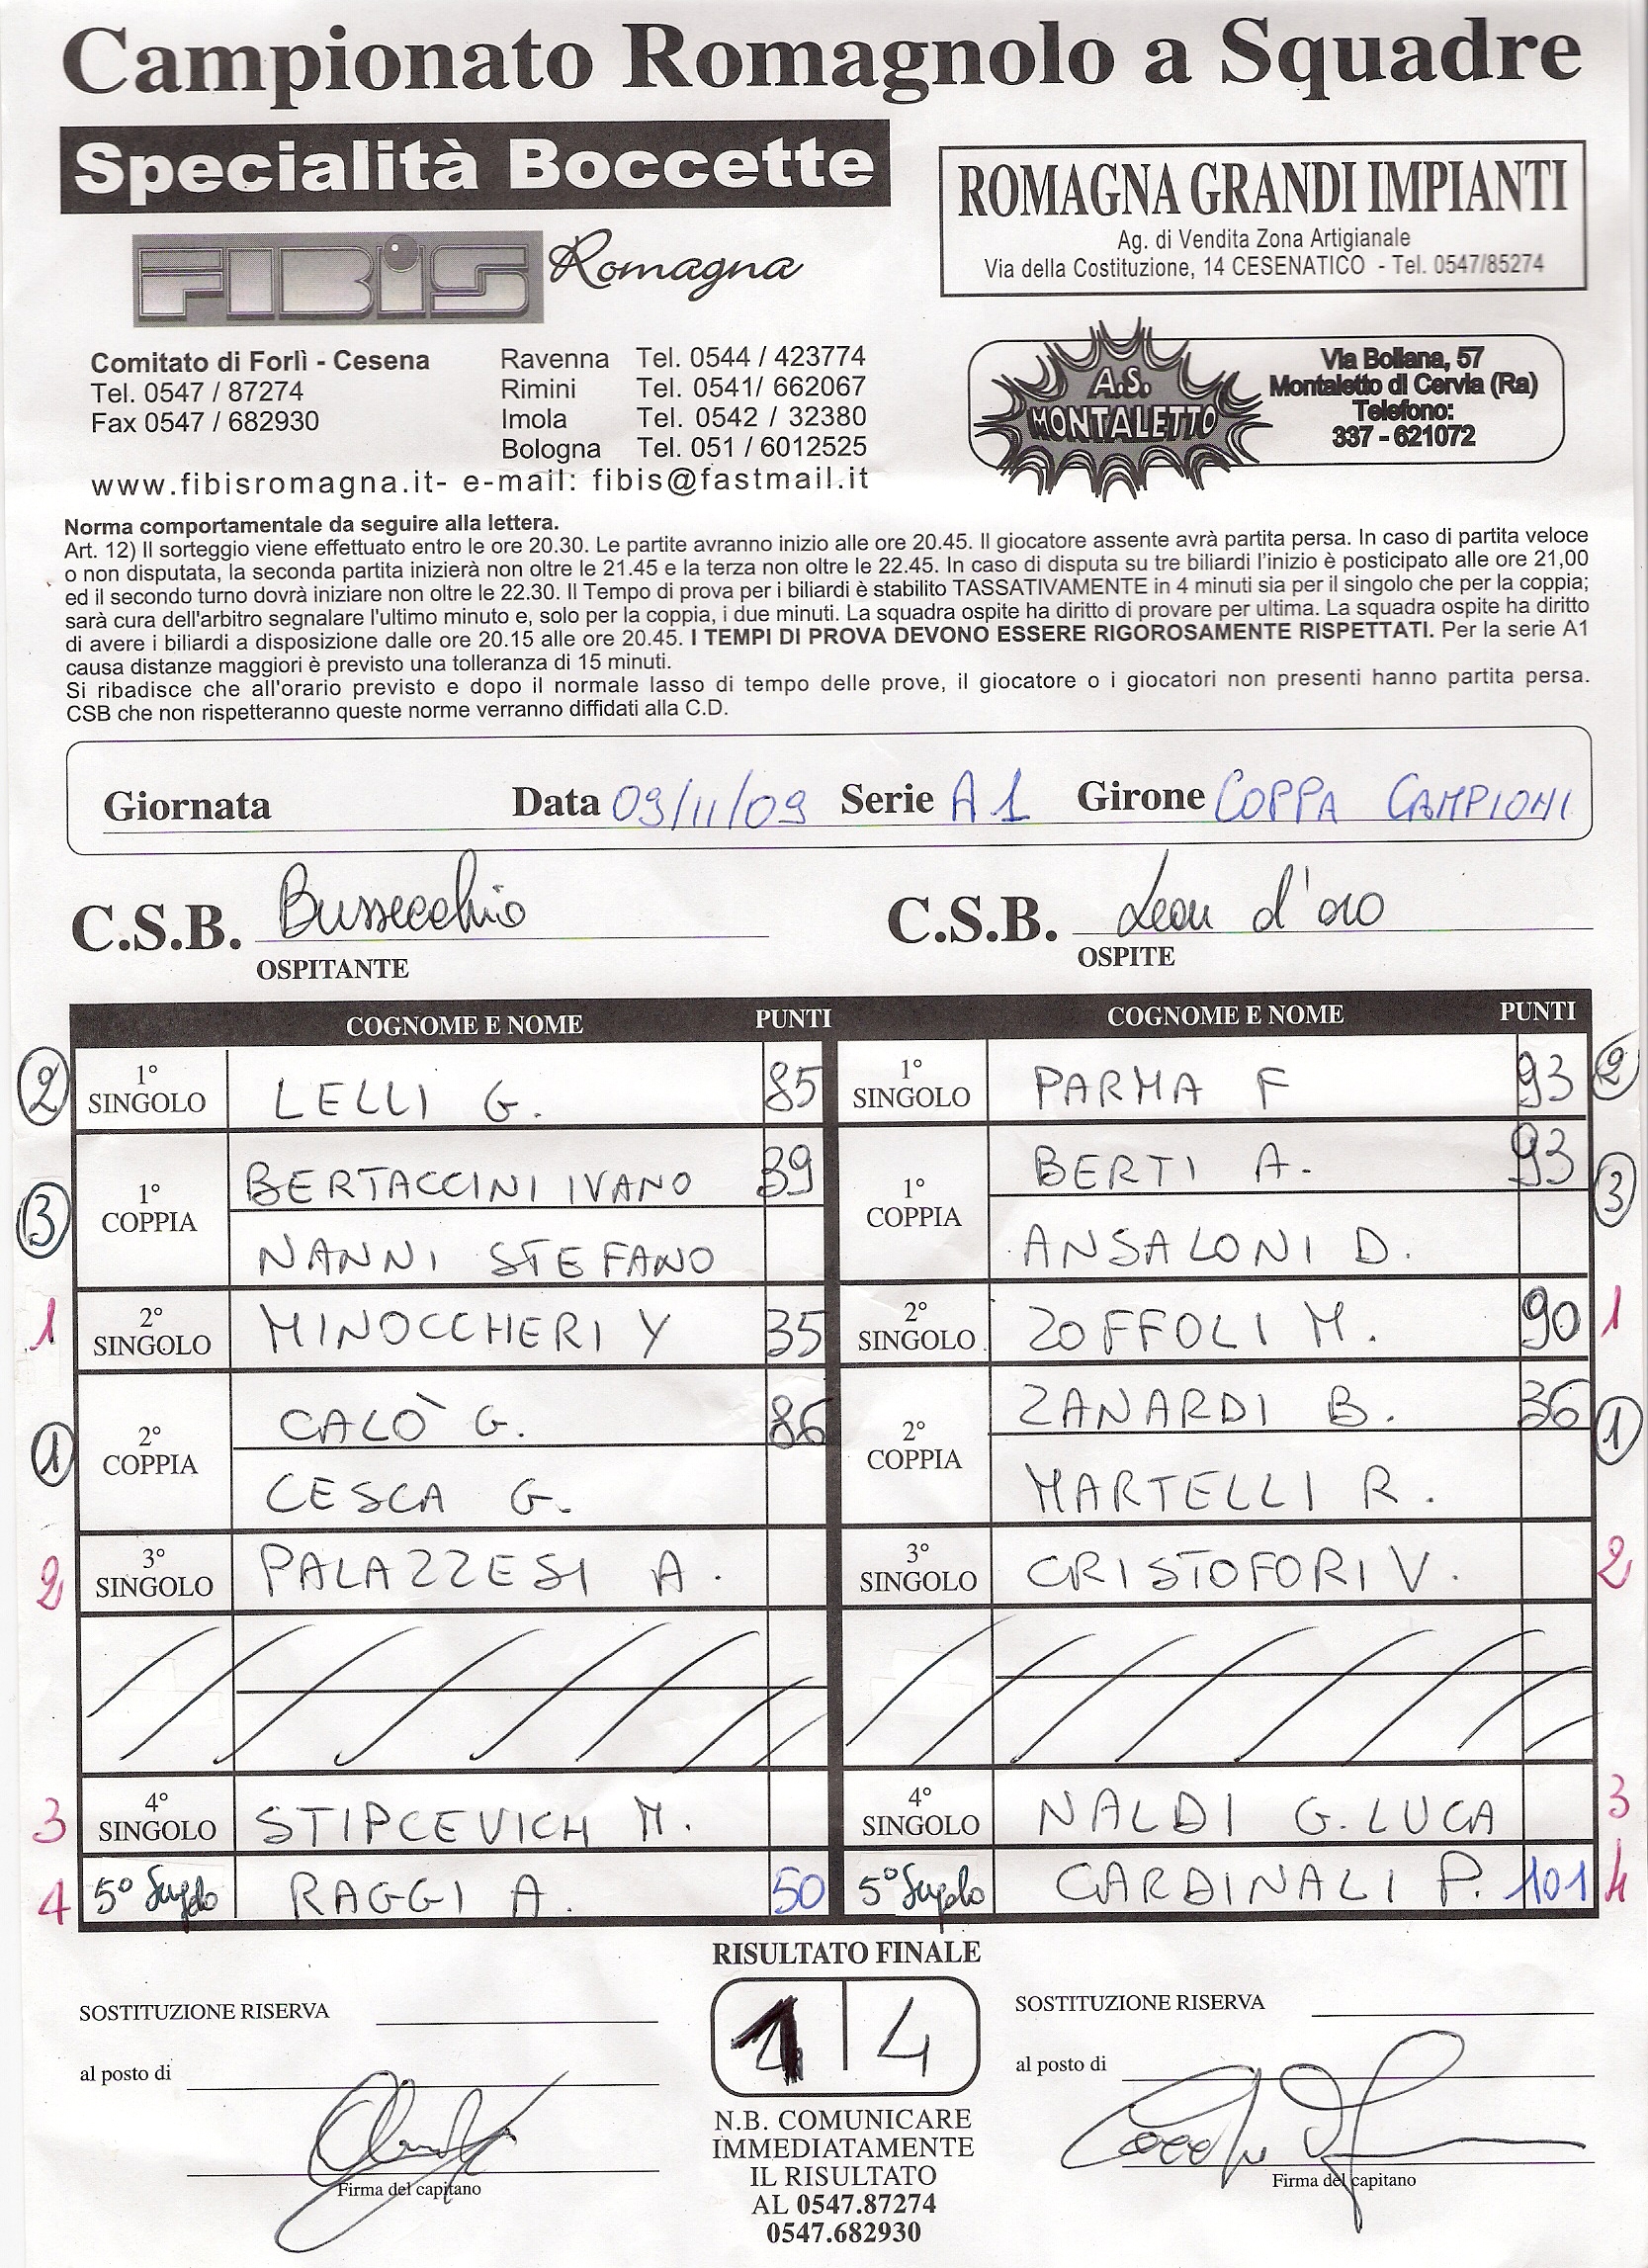 Campionato Romagnolo a Squadre
Specialità Boccette
FIBiS Romagna
ROMAGNA GRANDI IMPIANTI
Ag. di Vendita Zona Artigianale
Via della Costituzione, 14 CESENATICO - Tel. 0547/85274
Comitato di Forlì - Cesena
Tel. 0547 / 87274
Fax 0547 / 682930
Ravenna Tel. 0544 / 423774
Rimini Tel. 0541/ 662067
Imola Tel. 0542 / 32380
Bologna Tel. 051 / 6012525
www.fibisromagna.it- e-mail: fibis@fastmail.it
A.S.
MONTALETTO
Via Bollana, 57
Montaletto di Cervia (Ra)
Telefono:
337 - 621072
Norma comportamentale da seguire alla lettera.
Art. 12) Il sorteggio viene effettuato entro le ore 20.30. Le partite avranno inizio alle ore 20.45. Il giocatore assente avrà partita persa. In caso di partita veloce
o non disputata, la seconda partita inizierà non oltre le 21.45 e la terza non oltre le 22.45. In caso di disputa su tre biliardi l'inizio è posticipato alle ore 21,00
ed il secondo turno dovrà iniziare non oltre le 22.30. Il Tempo di prova per i biliardi è stabilito TASSATIVAMENTE in 4 minuti sia per il singolo che per la coppia;
sarà cura dell'arbitro segnalare l'ultimo minuto e, solo per la coppia, i due minuti. La squadra ospite ha diritto di provare per ultima. La squadra ospite ha diritto
di avere i biliardi a disposizione dalle ore 20.15 alle ore 20.45. I TEMPI DI PROVA DEVONO ESSERE RIGOROSAMENTE RISPETTATI. Per la serie A1
causa distanze maggiori è previsto una tolleranza di 15 minuti.
Si ribadisce che all'orario previsto e dopo il normale lasso di tempo delle prove, il giocatore o i giocatori non presenti hanno partita persa.
CSB che non rispetteranno queste norme verranno diffidati alla C.D.
Giornata Data 09/11/09 Serie A1 Girone COPPA CAMPIONI
C.S.B. Bussecchio C.S.B. Leon d'oro
OSPITANTE OSPITE
COGNOME E NOME PUNTI COGNOME E NOME PUNTI
2 1° SINGOLO LELLI G. 85 1° SINGOLO PARMA F 93 2
3 1° COPPIA BERTACCINI IVANO 39 1° COPPIA BERTI A. 93 3
NANNI STEFANO ANSALONI D.
1 2° SINGOLO MINOCCHERI Y 35 2° SINGOLO ZOFFOLI M. 90 1
1 2° COPPIA CALÒ G. 86 2° COPPIA ZANARDI B. 36 1
CESCA G. MARTELLI R.
2 3° SINGOLO PALAZZESI A. 3° SINGOLO CRISTOFORI V. 2
3 4° SINGOLO STIPCEVICH M. 4° SINGOLO NALDI G. LUCA 3
4 5° Singolo RAGGI A. 50 5° Singolo CARDINALI P. 101 4
RISULTATO FINALE
1 4
SOSTITUZIONE RISERVA SOSTITUZIONE RISERVA
al posto di al posto di
Firma del capitano Firma del capitano
N.B. COMUNICARE
IMMEDIATAMENTE
IL RISULTATO
AL 0547.87274
0547.682930